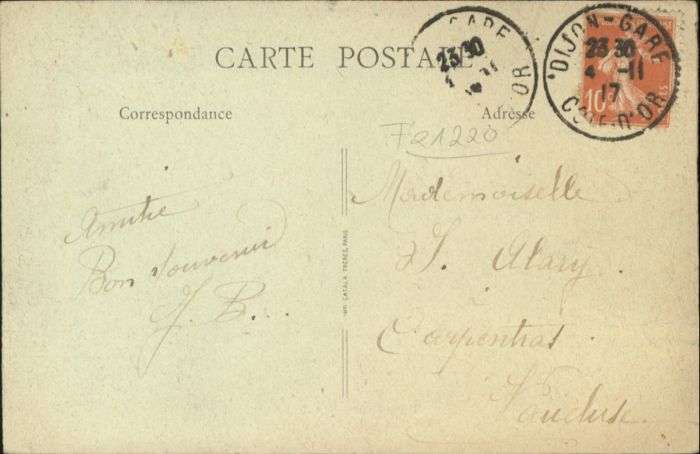 CARTE POSTALE
GARE
23 30
OR
DIJON-GARE
23 30
4 -11
17
COTE-D'OR
10
Correspondance
Adresse
Fa1220
Mademoiselle
S. Alary
Carpentras
Vaucluse
Amitié
Bon souvenir
J. B...
IMP. CATALA FRÈRES, PARIS